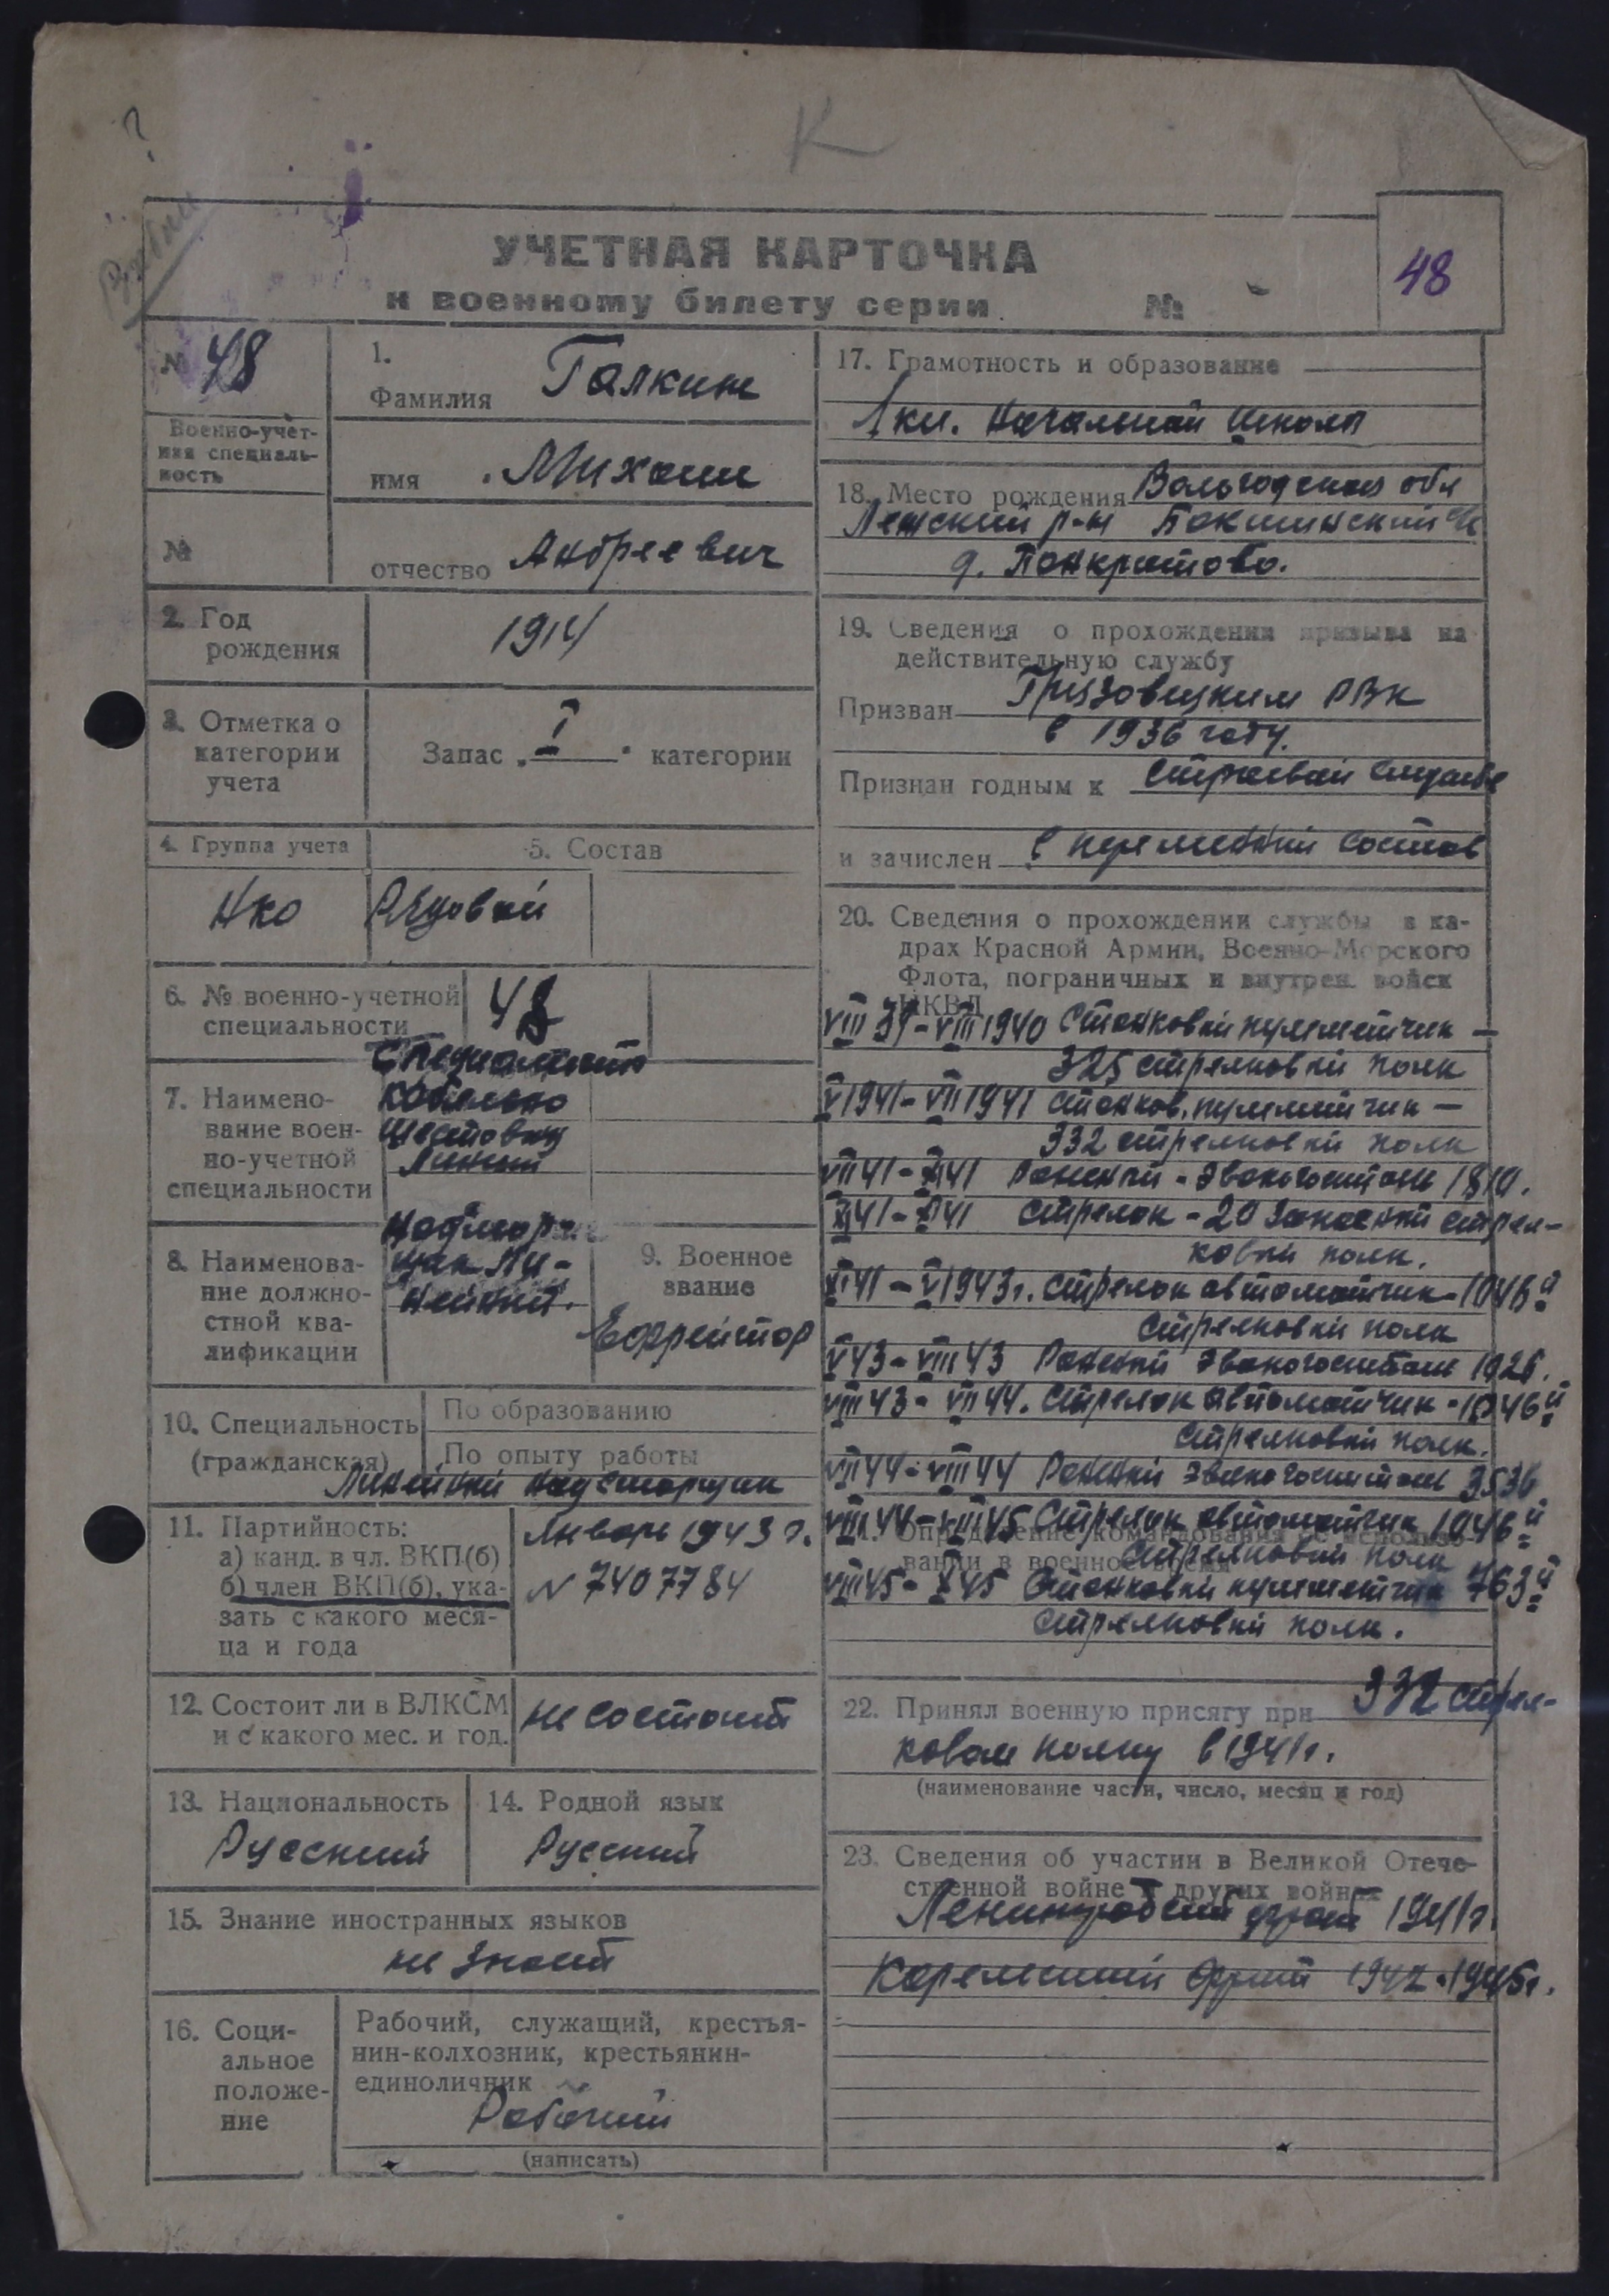 ?
К
УЧЕТНАЯ КАРТОЧКА
к военному билету серии №
48
№ 48
Военно-учет-
ная специаль-
ность
№
1.
Фамилия Галкин
имя Михаил
отчество Андреевич
2. Год
рождения
1914
3. Отметка о
категории
учета
Запас „ I " категории
4. Группа учета
НКО
5. Состав
Рядовой
6. № военно-учетной
специальности
48
7. Наимено-
вание воен-
но-учетной
специальности
Специалист
кабельно
шестовых
Линий
8. Наименова-
ние должно-
стной ква-
лификации
Надсмор
щик Ли-
нейный.
9. Военное
звание
Ефрейтор
10. Специальность
(гражданская)
По образованию
По опыту работы
Линейный надсморщик
11. Партийность:
а) канд. в чл. ВКП(б)
б) член ВКП(б), ука-
зать с какого меся-
ца и года
Январь 1943 г.
№ 7407784
12. Состоит ли в ВЛКСМ
и с какого мес. и год.
не состоит
13. Национальность
Русский
14. Родной язык
Русский
15. Знание иностранных языков
не знает
16. Соци-
альное
положе-
ние
Рабочий, служащий, крестья-
нин-колхозник, крестьянин-
единоличник
Рабочий
(написать)
17. Грамотность и образование
1 кл. Начальной Школы
18. Место рождения Вологодская обл
Лежский р-н
д. Панкратово.
19. Сведения о прохождении призыва на
действительную службу
Призван Грязовецким РВК
в 1936 году.
Признан годным к строевой службе
и зачислен в состав
20. Сведения о прохождении службы в ка-
драх Красной Армии, Военно-Морского
Флота, пограничных и внутрен. войск
НКВД
VIII 39-VIII 1940 Станковый пулеметчик —
325 стрелковый полк
V 1941-VII 1941 станков. пулеметчик —
332 стрелковый полк
VII 41-XI 41 Раненый - Эвакогоспиталь 1810.
XI 41-XI 41 Стрелок - 20 Запасный стрел-
ковый полк.
XI 41-V 1943 г. стрелок автоматчик - 1046й
стрелковый полк
V 43-VIII 43 Раненый Эвакогоспиталь
VIII 43-VII 44. Стрелок автоматчик - 1046й
стрелковый полк.
VII 44-VIII 44 Раненый эвакогоспиталь 3536
VIII 44-VIII 45 Стрелок автоматчик 1046й
21. Определение командования об использо-
вании в военное время
стрелковый полк
VIII 45-X 45 Станковый пулеметчик 763й
стрелковый полк.
22. Принял военную присягу при 332 стрел-
ковом полку в 1941 г.
(наименование части, число, месяц и год)
23. Сведения об участии в Великой Отече-
ственной войне и других войнах
Ленинградский фронт 1941 г.
Карельский фронт 1942-1945 г.